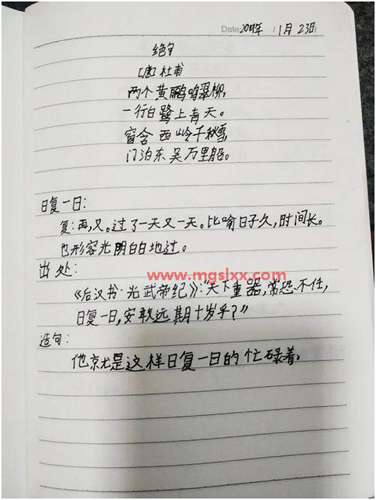 Date: 2019年 1月 23日
绝句
[唐] 杜甫
两个黄鹂鸣翠柳,
一行白鹭上青天。
窗含西岭千秋雪,
门泊东吴万里船。
日复一日:
复:再,又。过了一天又一天。比喻日子久,时间长。
也形容光阴白白地过。
出处:
www.mgslxx.com
《后汉书·光武帝纪》:“天下重器,常恐不任,
日复一日,安敢远期十岁乎?”
造句:
他就是这样日复一日的忙碌着。